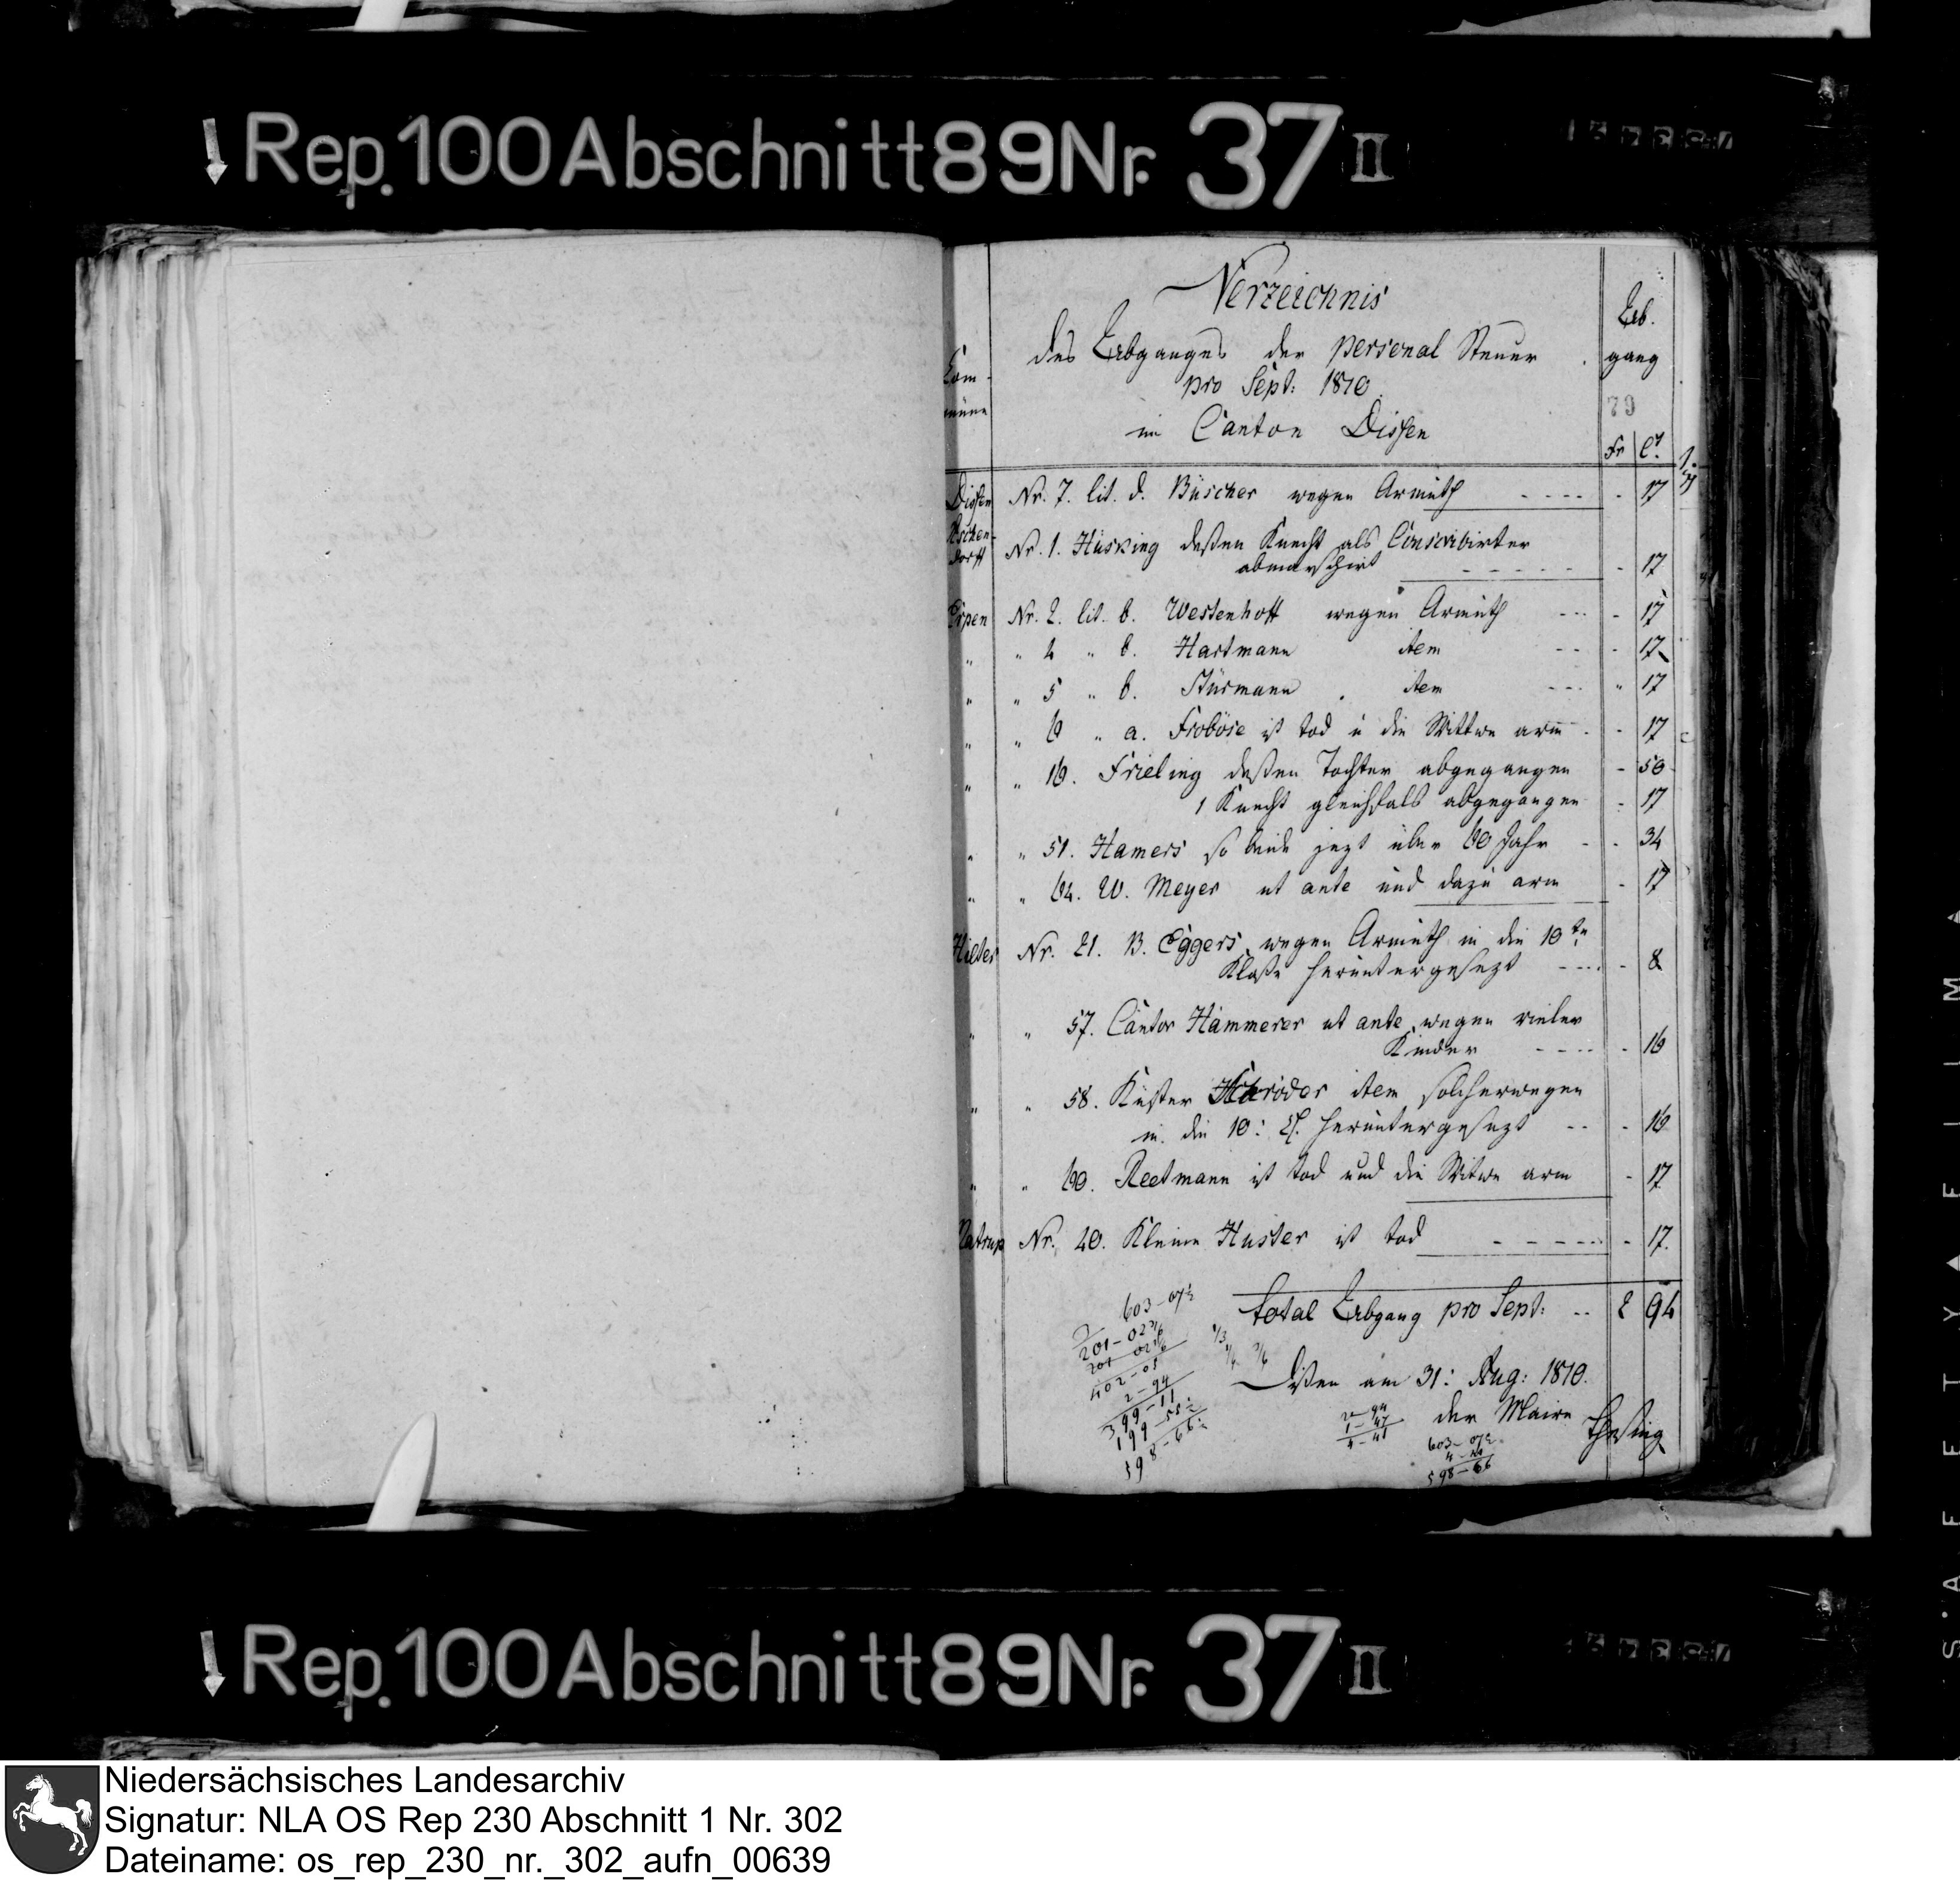 Rep. 100 Abschnitt 89 Nr. 37 II
Verzeichnis
des Abganges der personal Steuer
pro Sept: 1810
im Canton Dissen
Com-
mune
Ab-
gang
79
Fr Ct.
Dissen Nr. 7. lit. d. Büscher wegen Armuth - - - - - 17
Aschen-
dorff Nr. 1. Hüsking deßen Knecht als Conscribirter
abmarschirt - - - - - - 17
Erpen Nr. 2. lit. b. Westenhoff wegen Armuth - - - - 17
" " 4 " b. Hartmann item - - - 17
" " 5 " b. Stürmann item - - - " 17
" " 6 " a. Froböse ist tod u die Wittwe arm - - 17
" " 16. Frieling deßen Tochter abgegangen - 50
1 Knecht gleichfals abgegangen - 17
" " 51. Hamers so beide jezt über 60 Jahr - - 34
" " 64. W. Meyer ut ante und dazu arm - 17
Hilter Nr. 21. B. Eggers wegen Armuth in die 10te
Klaße heruntergesezt - - - - - 8
" " 57. Cantor Hammerer ut ante wegen vieler
Kinder - - - - - 16
" " 58. Küster Schröder item solcherwegen
in die 10: Cl. heruntergesezt - - - 16
" " 60. Reetmann ist tod und die Witwe arm - 17
Natrup Nr. 40. Kleine Huster ist tod - - - - - - 17.
total Abgang pro Sept: - - 2 94
603-07½
201-02 3/6
201 02 3/6
402-05
2-94
399-11
199-55½
598-66½
Dißen am 31: Aug: 1810.
der Maire
2-94
1-47
4-41
603-07½
4-41
598-66
Rep. 100 Abschnitt 89 Nr. 37 II
Niedersächsisches Landesarchiv
Signatur: NLA OS Rep 230 Abschnitt 1 Nr. 302
Dateiname: os_rep_230_nr._302_aufn_00639